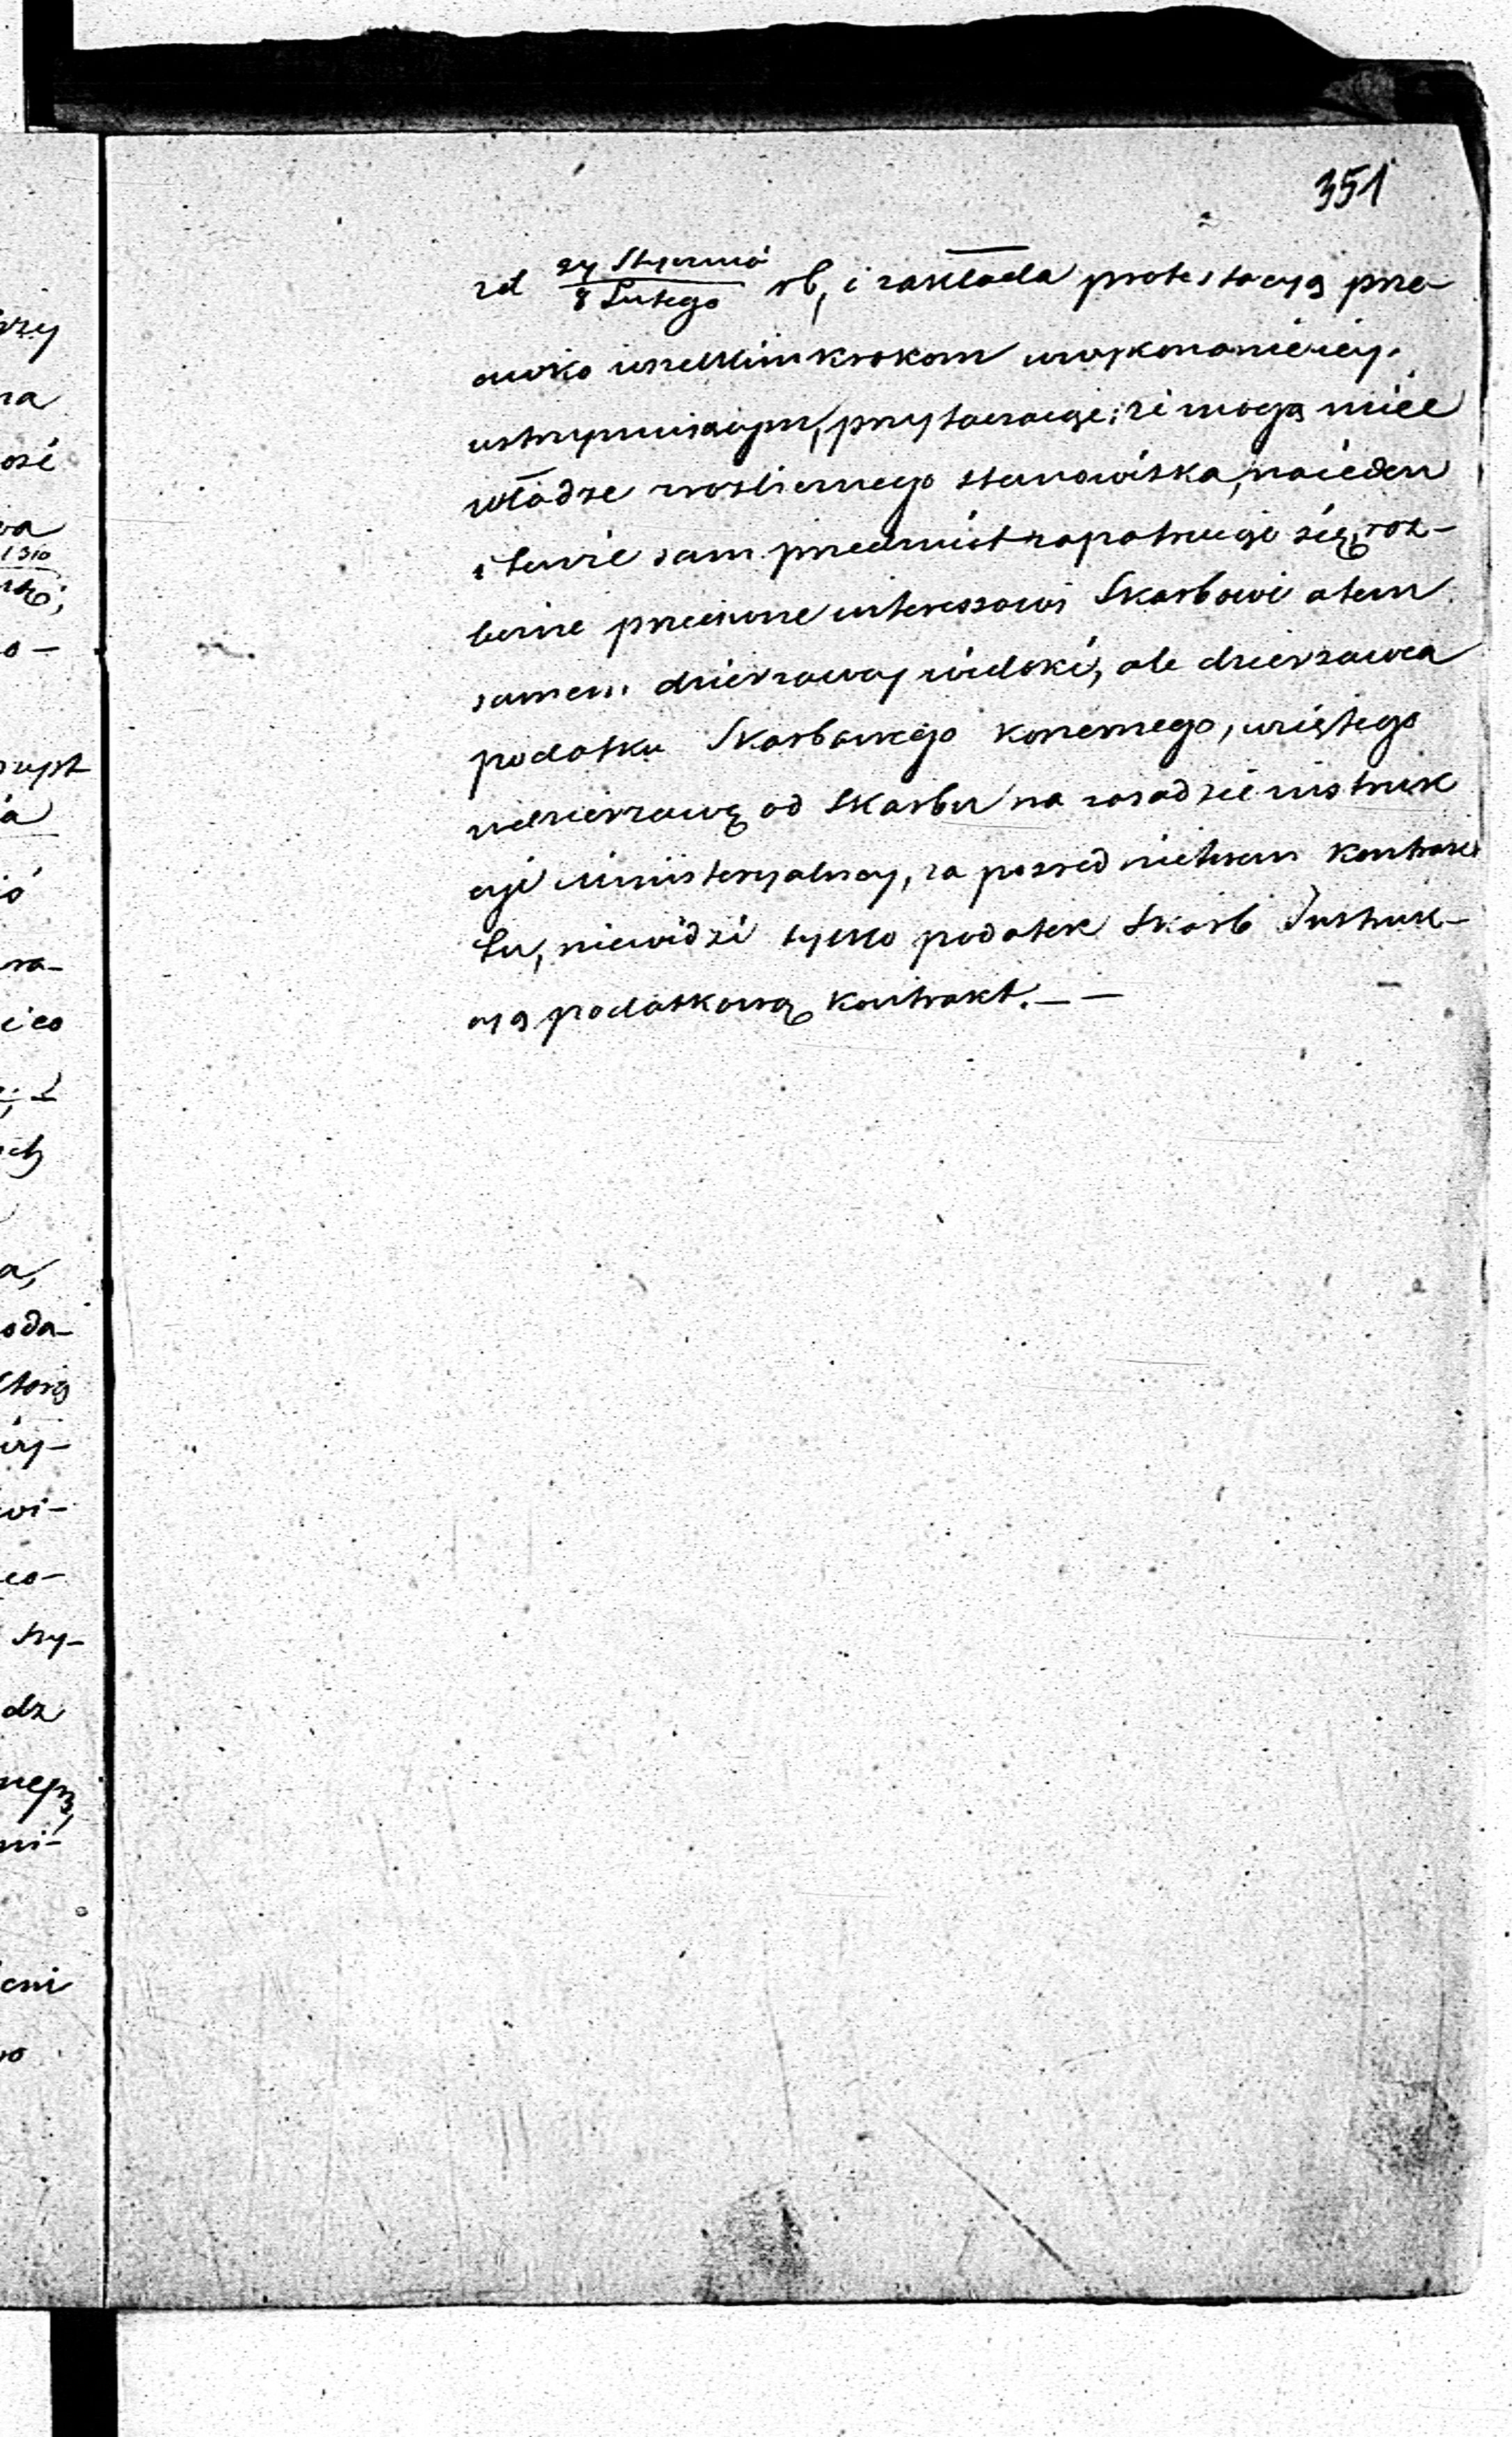 351
zd 27 Stycznia / 8 Lutego rb, i zakłada protestacyą prze-
ciwko wszelkim krokom wwykonanie iéy
wstrzymującym, przytaczając: że mogą mieć
władze rozlicznego stanowiska, na ieden
i tenże sam przedmiot zapatrując się, roz-
liczne przeciwne interessowi Skarbowi atem
samem dzierżawcy widoki, ale dzierżawca
podatku Skarbowego konsumego, wziętego
wdzierżawę od Skarbu na zasadzie instruk
cyi ministeryalnej, za pośrednictwem kontrak
tu, niewidzi tylko podatek Skarb Instruk-
cyą podatkową kontrakt. — —